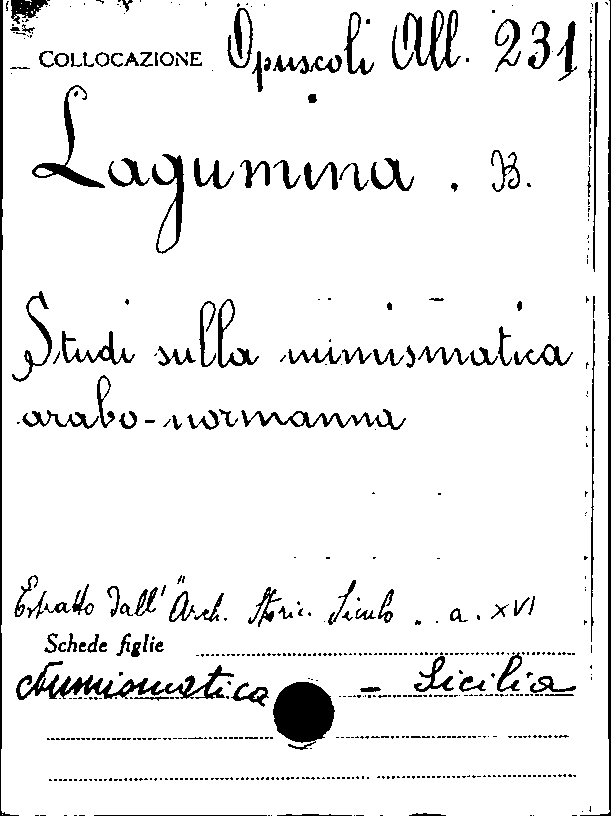 COLLOCAZIONE Opuscoli All. 231
Lagumina. B.
Studi sulla numismatica
arabo-normanna
Estratto dall' "Arch. Storic. Siculo. a. XVI
Schede figlie
Numismatica - Sicilia